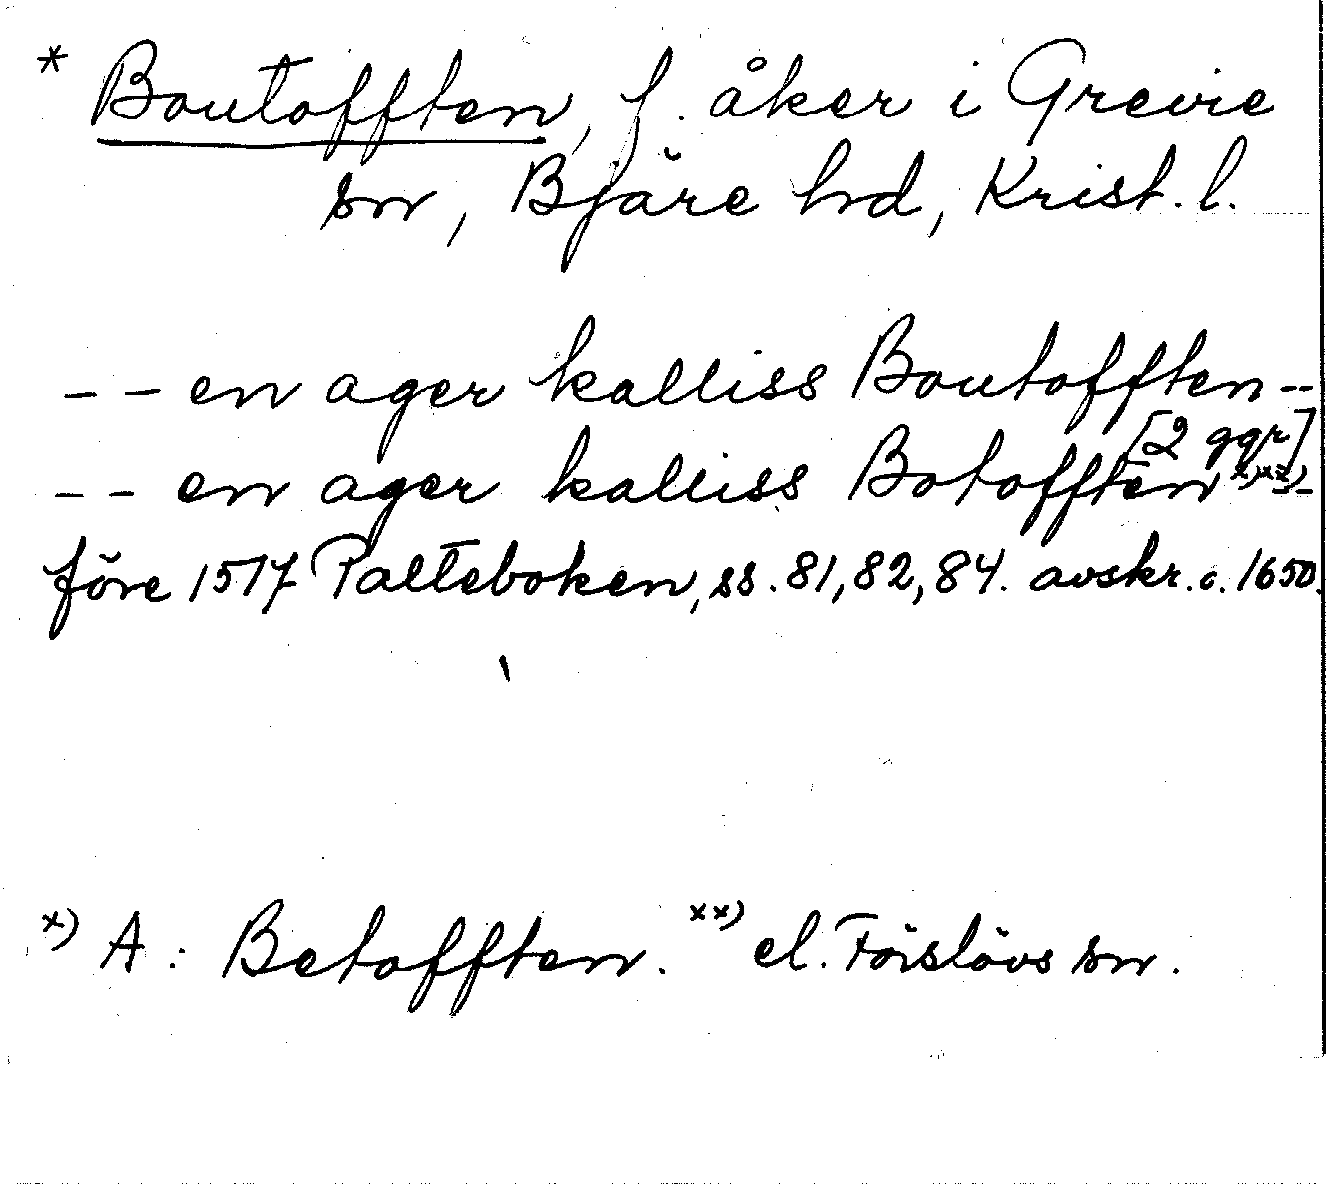 * Boutofften, f. åker i Grevie
sn, Bjäre hd, Krist. l.
-- en ager kalliss Boutofften --
[2 ggr]
-- en ager kalliss Botofften x) xx) -
före 1517 Palteboken, ss. 81, 82, 84. avskr. c. 1650.
x) A: Betofften. xx) el. Förslövs sn.